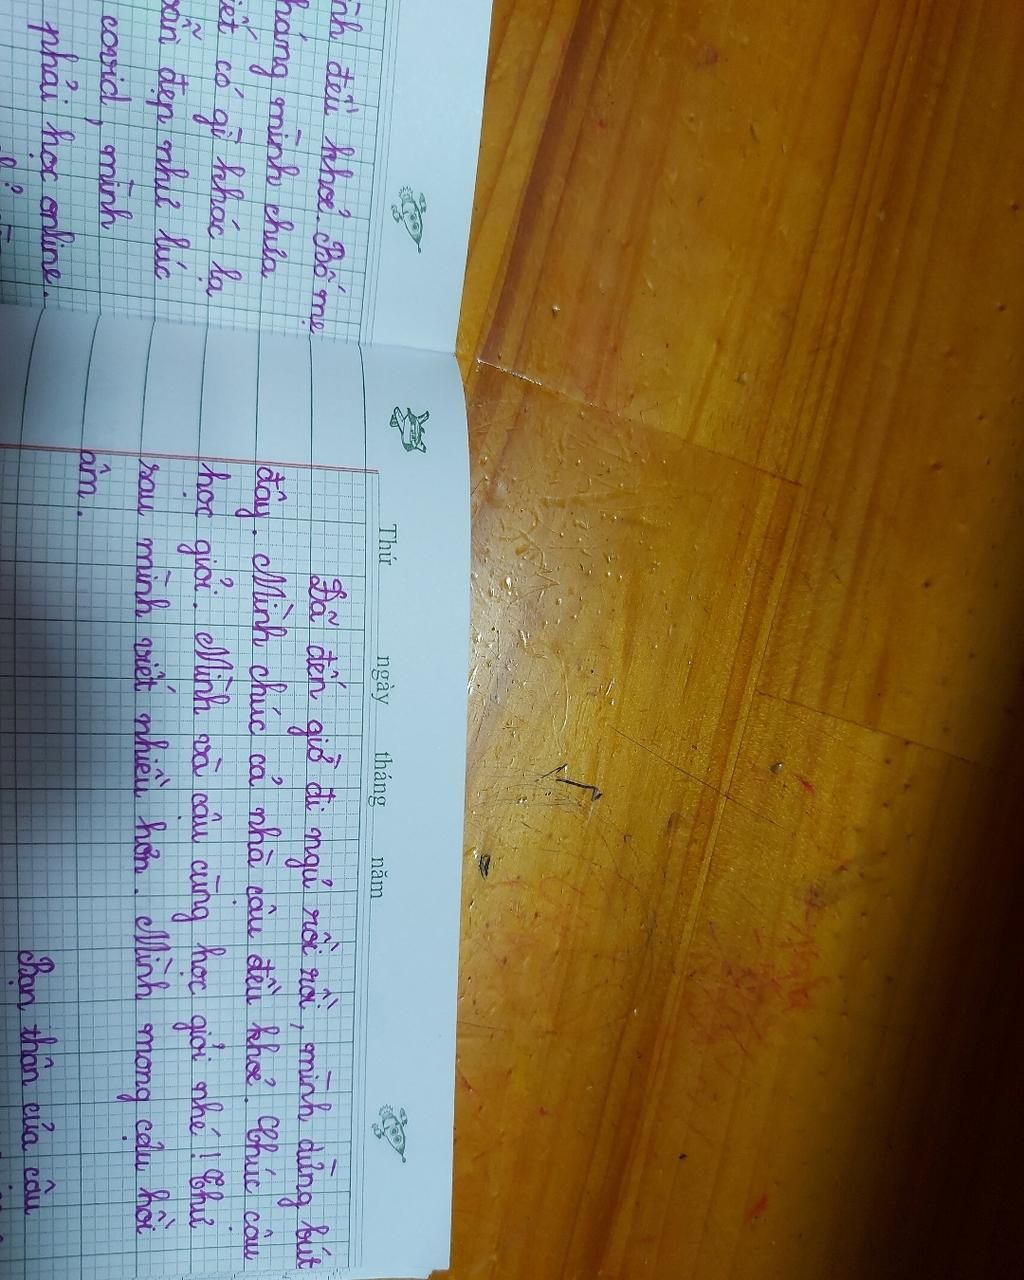 đều khoẻ. Bố mẹ
mình chưa
có gì khác lạ
đẹp như lúc
covid, mình
phải học online.
Thứ ngày tháng năm
Đã đến giờ đi ngủ rồi rồi, mình dừng bút
đây. Mình chúc cả nhà cậu đều khoẻ. Chúc cậu
học giỏi. Mình và cậu cùng học giỏi nhé! Thư
sau mình viết nhiều hơn. Mình mong cậu hồi
âm.
Bạn thân của cậu